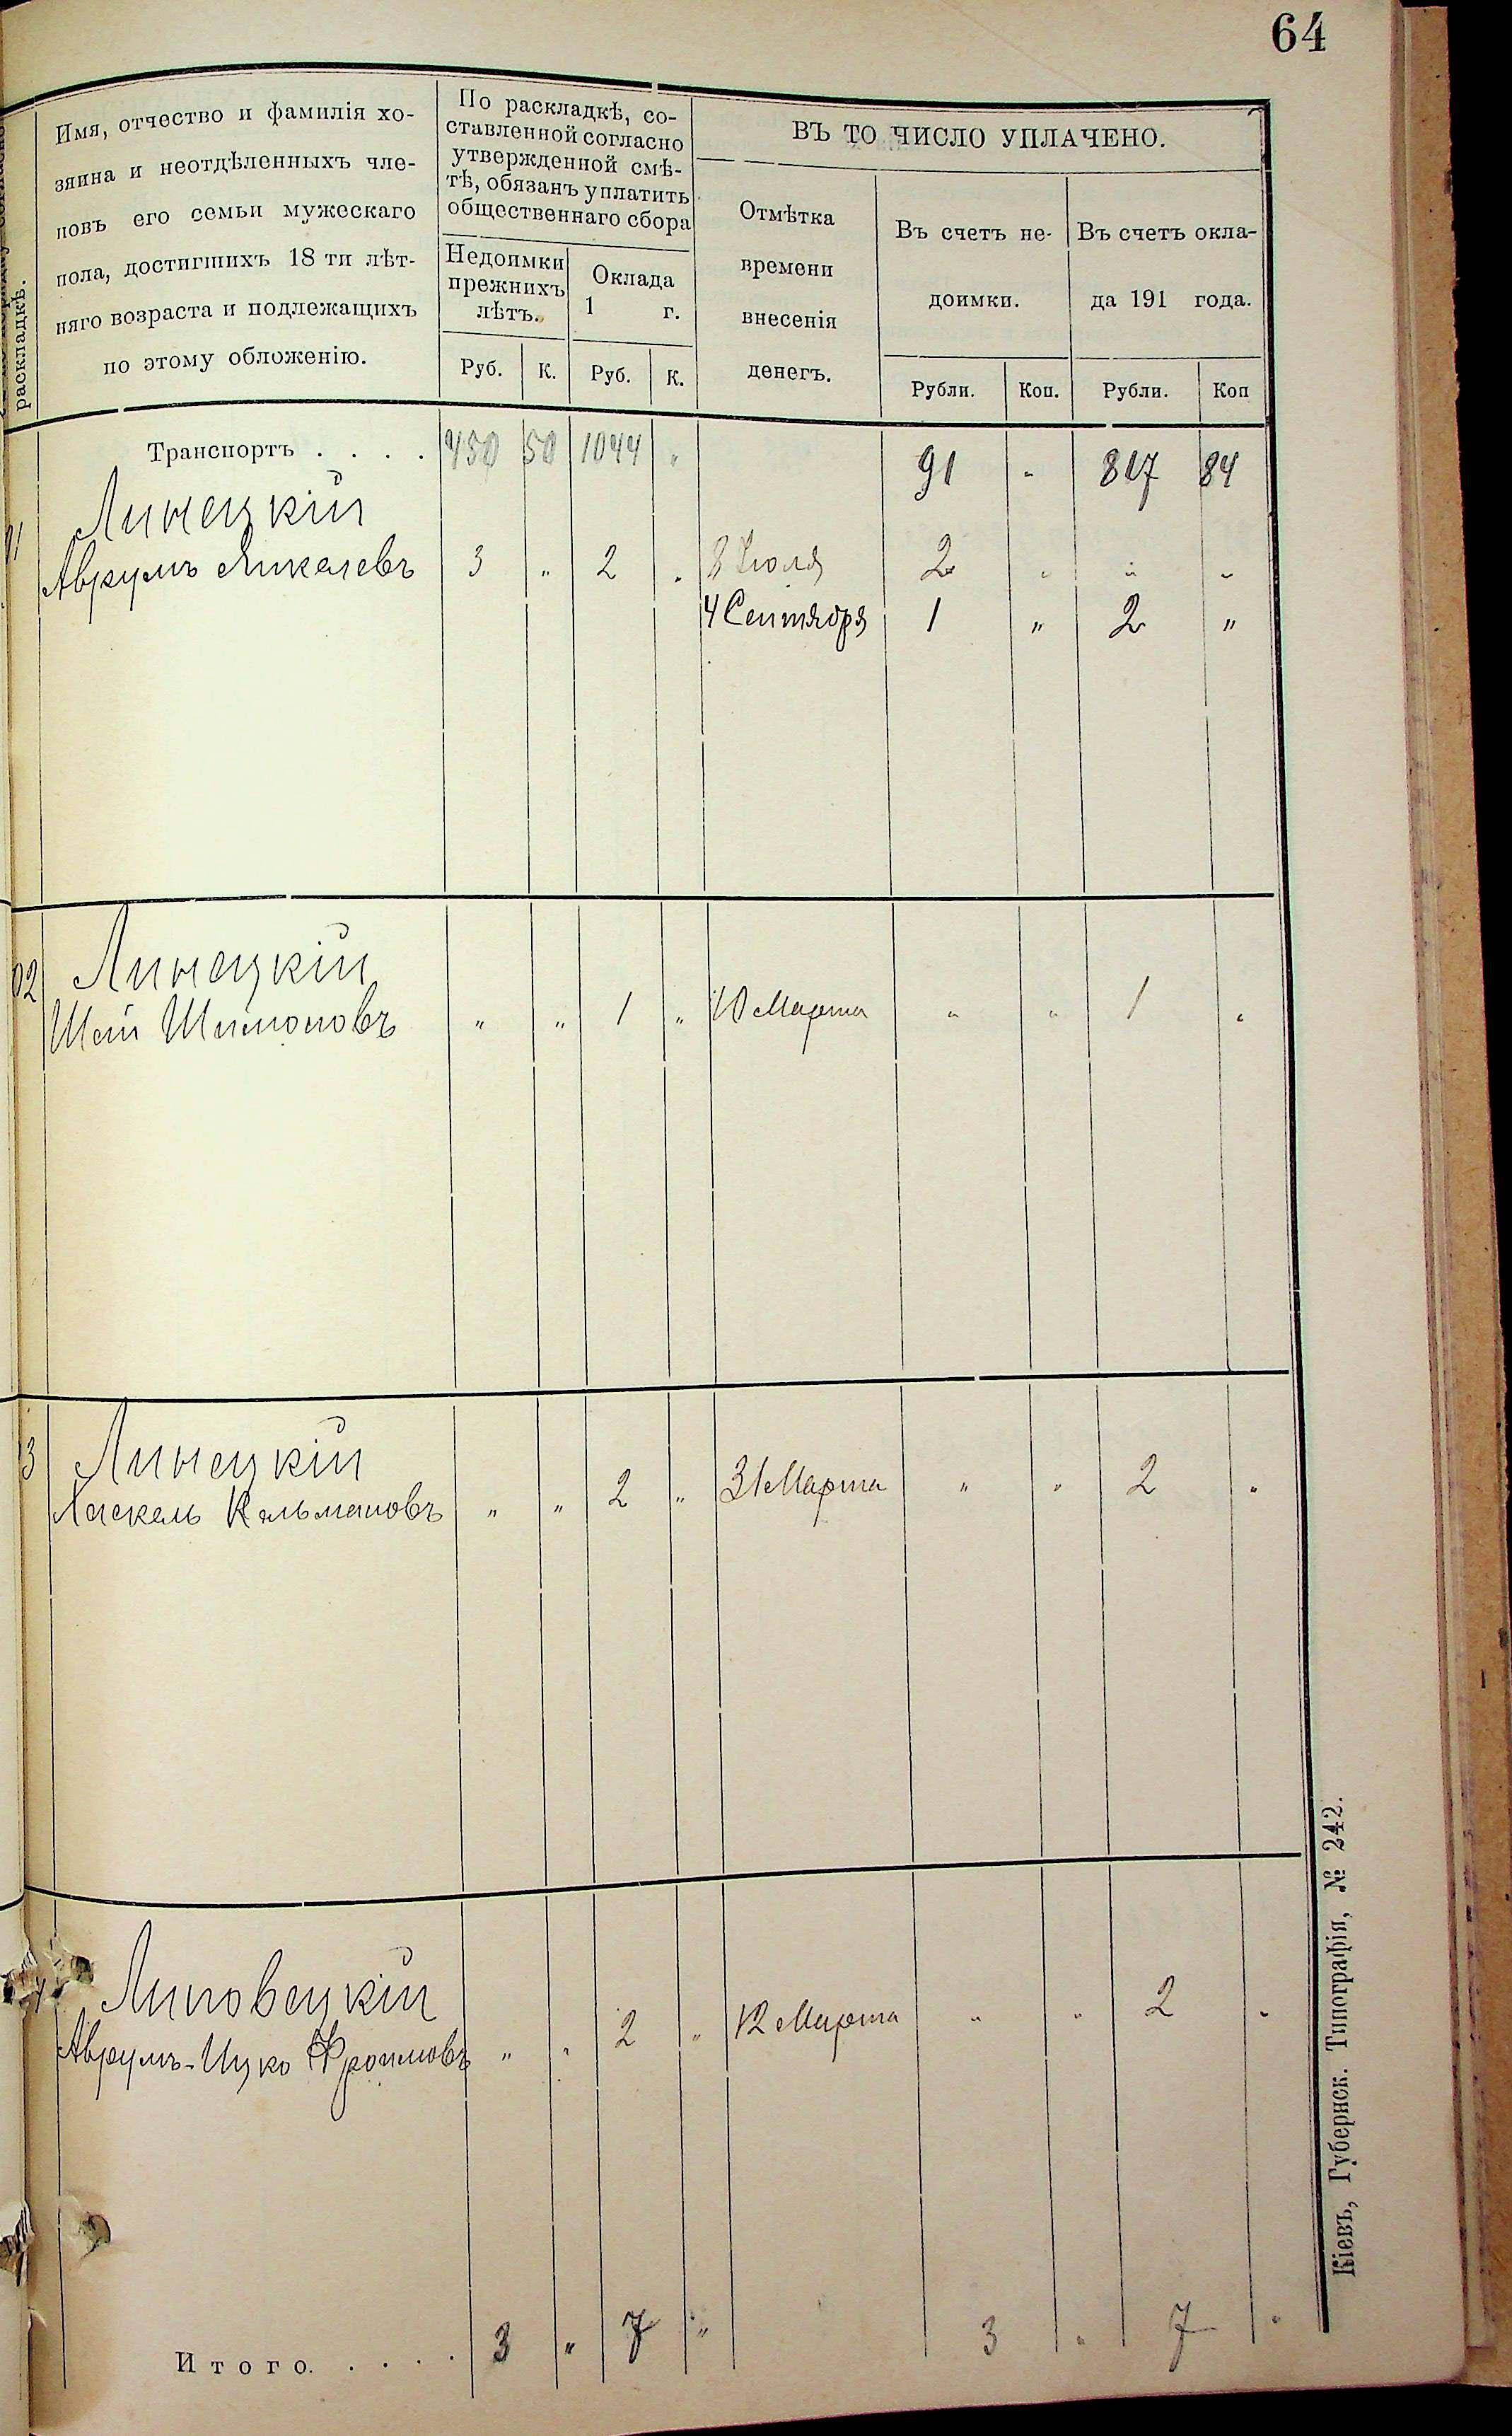 64
раскладкѣ.
Имя, отчество и фамилія хо-
зяина и неотдѣленныхъ чле-
новъ его семьи мужескаго
пола, достигшихъ 18 ти лѣт-
няго возраста и подлежащихъ
по этому обложенію.
По раскладкѣ, со-
ставленной согласно
утвержденной смѣ-
тѣ, обязанъ уплатить
общественнаго сбора
Недоимки
прежнихъ
лѣтъ.
Оклада
1 г.
Руб. К. Руб. К.
ВЪ ТО ЧИСЛО УПЛАЧЕНО.
Отмѣтка
времени
внесенія
денегъ.
Въ счетъ не-
доимки.
Въ счетъ окла-
да 191 года.
Рубли. Коп. Рубли. Коп
Транспортъ . . . . 450 50 1044 " 91 " 817 84
Линецкій
Аврумъ 3 " 2 " 8 Іюля 2 " " "
4 Сентября 1 " 2 "
02 Линецкій
Шая Шимоновъ " " 1 " 10 Марта " " 1 "
3 Линецкій
Хаскель Кальмановъ " " 2 " 31 Марта " " 2 "
Липовецкій
Аврумъ-Ицко Фроимовъ " " 2 " 12 Марта " " 2 "
Итого. . . . . 3 " 7 " 3 " 7 "
Кіевъ, Губернск. Типографія, № 242.